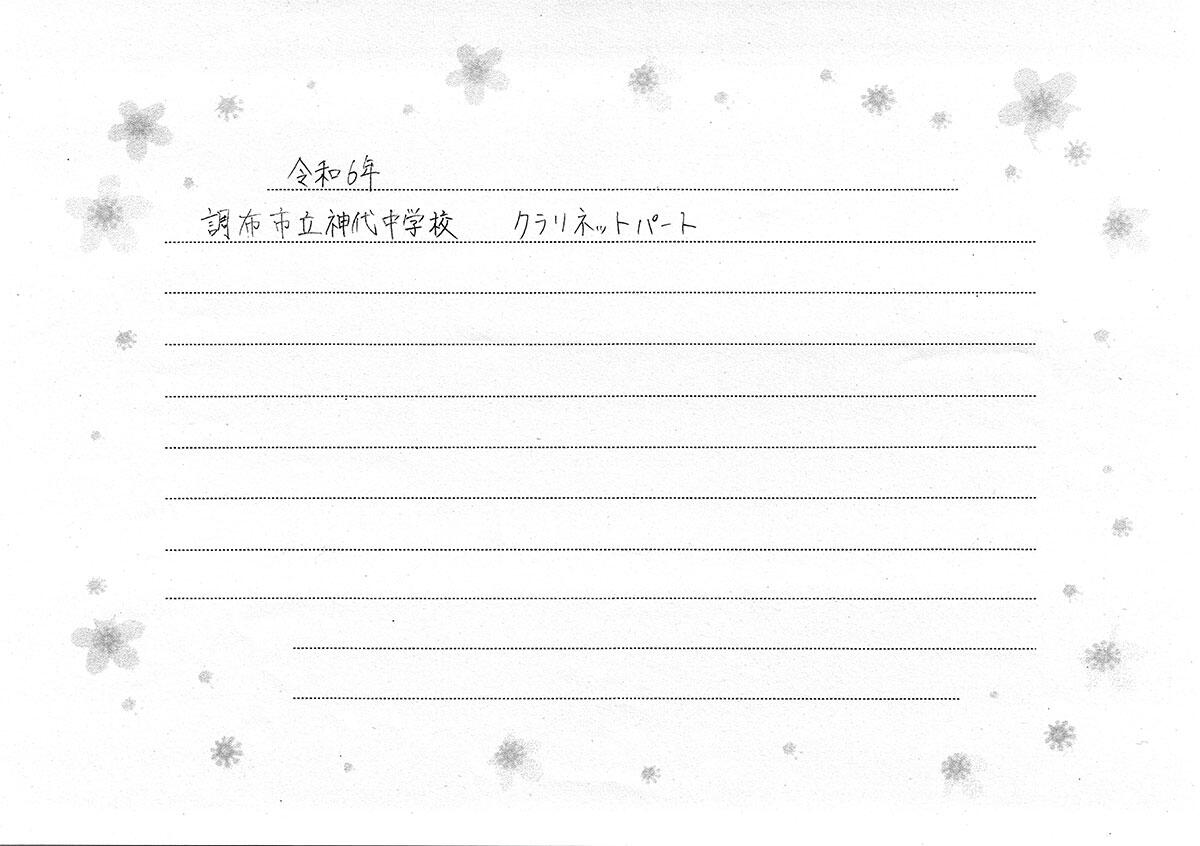 令和6年
調布市立神代中学校　クラリネットパート